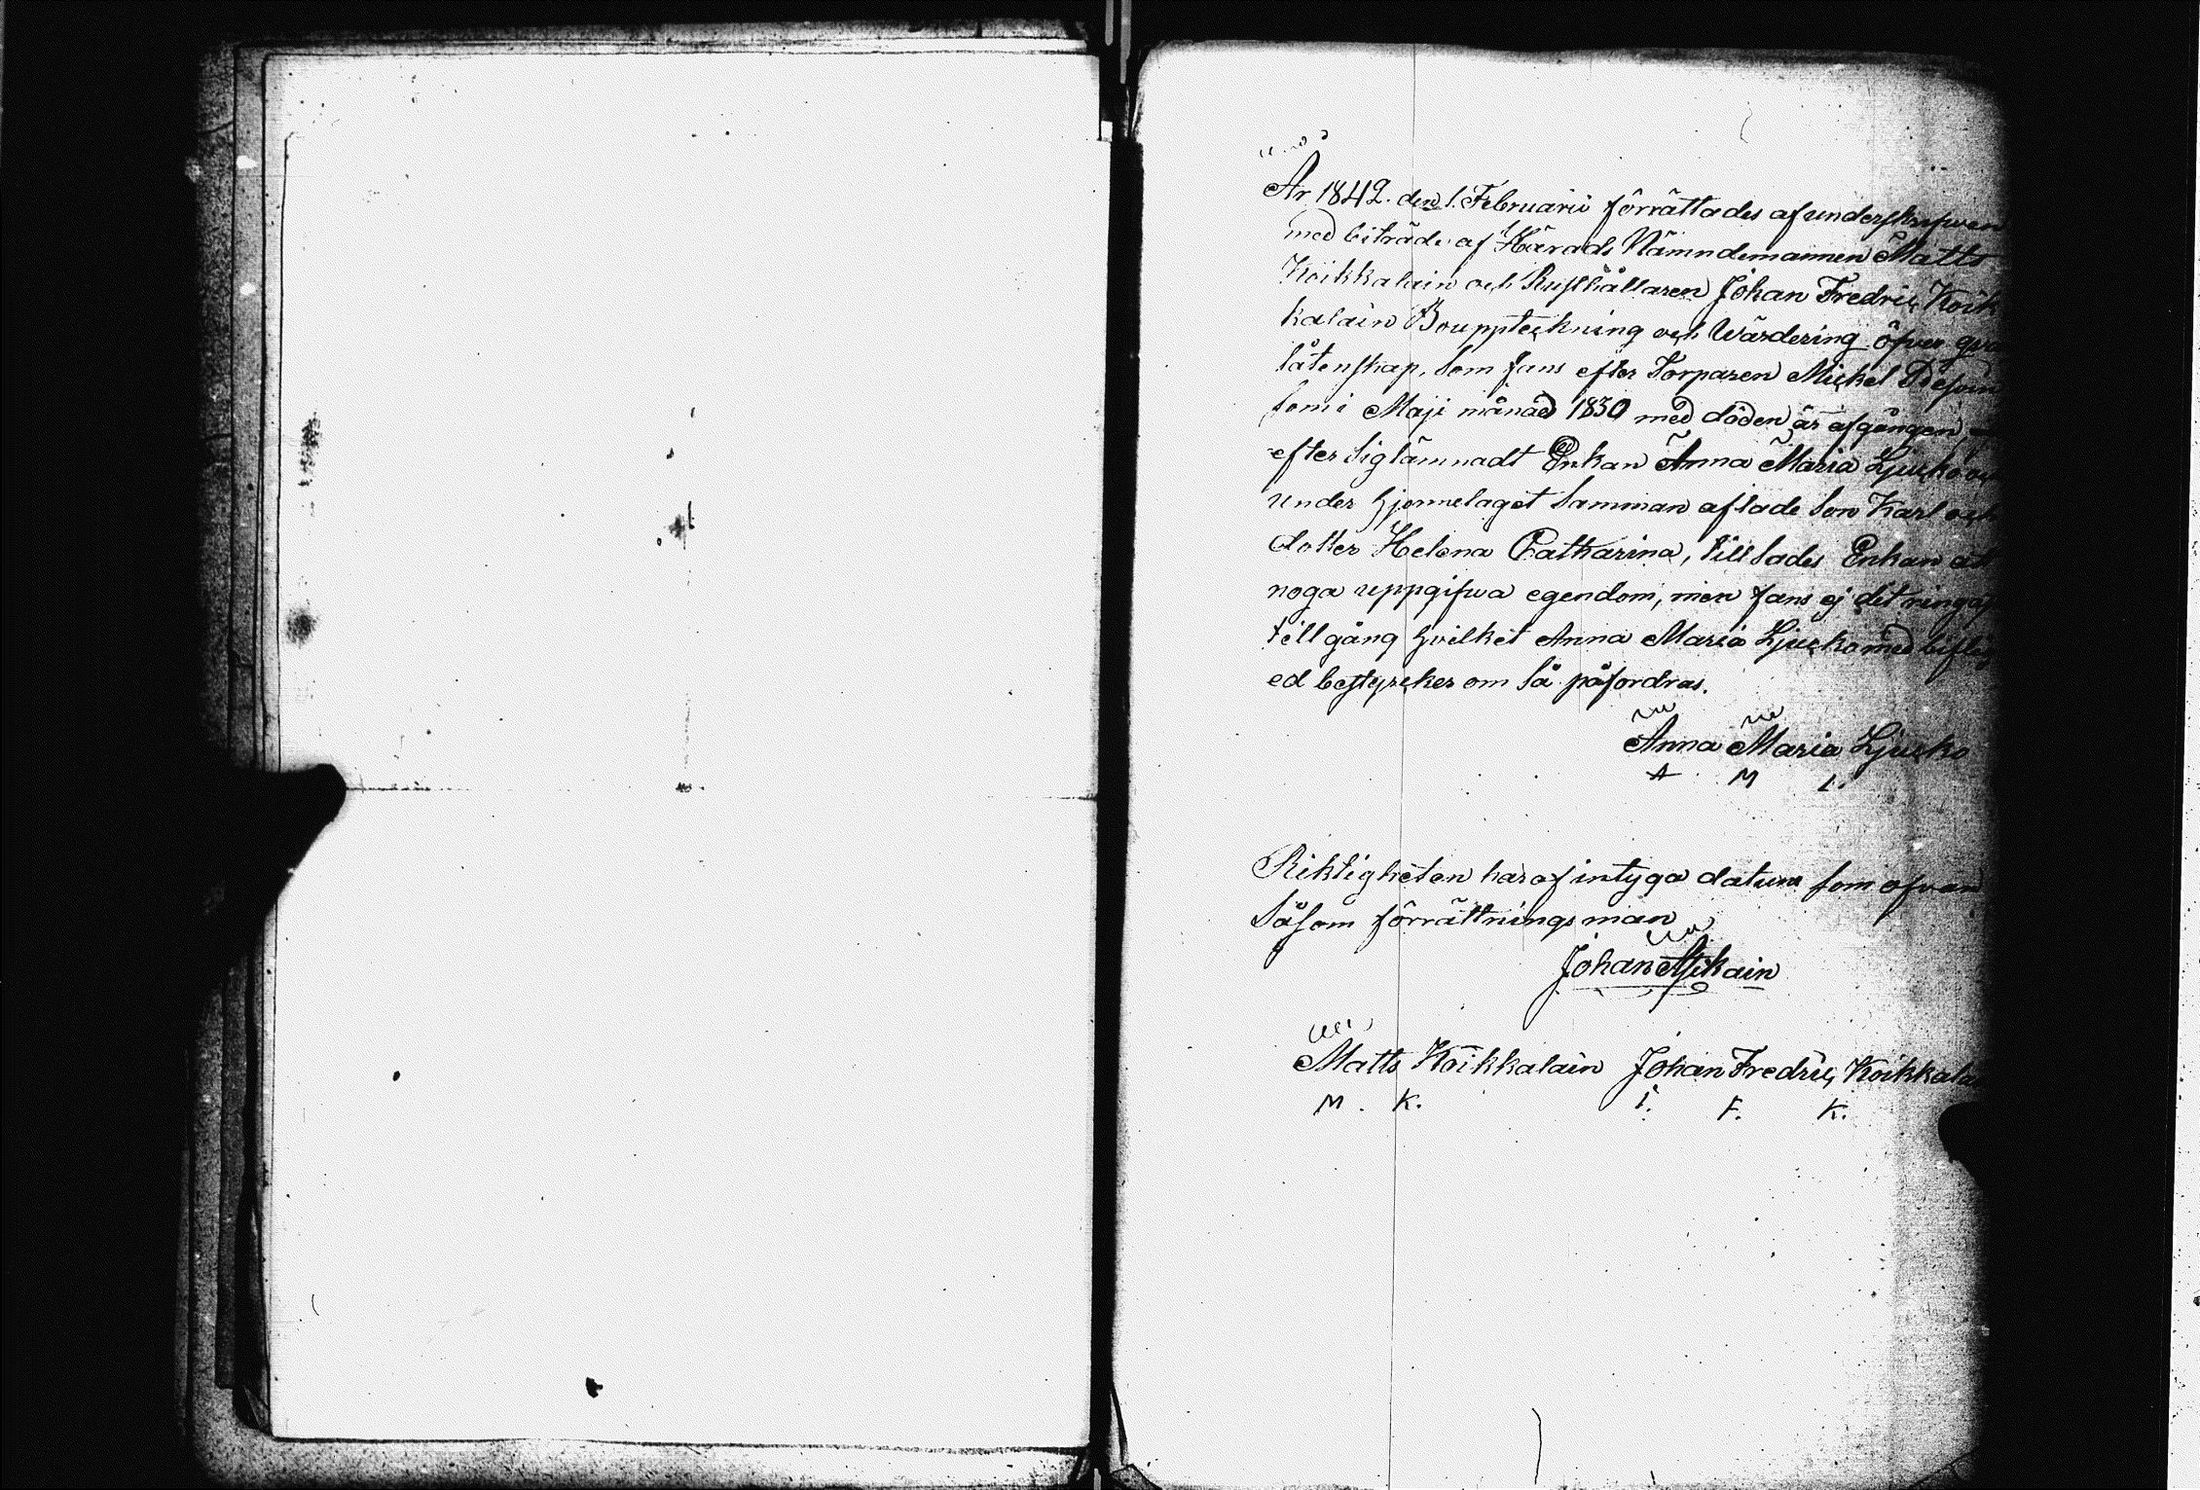 År 1842. den 1. Februarii förrättades af underskrifwen
med biträde af Härads Nämndemannen Matts
Koikkalain och Rusthållaren Johan Fredric Koik
kalain Bouppteckning och Wärdering öfwer qwar
låtenskap, som fans efter Torparen Mickel
som i Maji månad 1830 med döden är afgången,
efter sig lämnadt Enkan Anna Maria Ljucko och
under hjonnelaget samman aflade son Karl och
dotter Helena Catharina, tillsades Enkan at
noga uppgifwa egendom, men fans ej det ringas
tillgång hvilket Anna Maria Ljucko med
ed bestyrckes om så påfordras.
Anna Maria Ljucko
A M L.
Riktigheten haraf intyga datum som ofvan
Såsom förrättningsman
Johan
Matts Koikkalain Johan Fredric Koikkala
M. K. I. F. K.